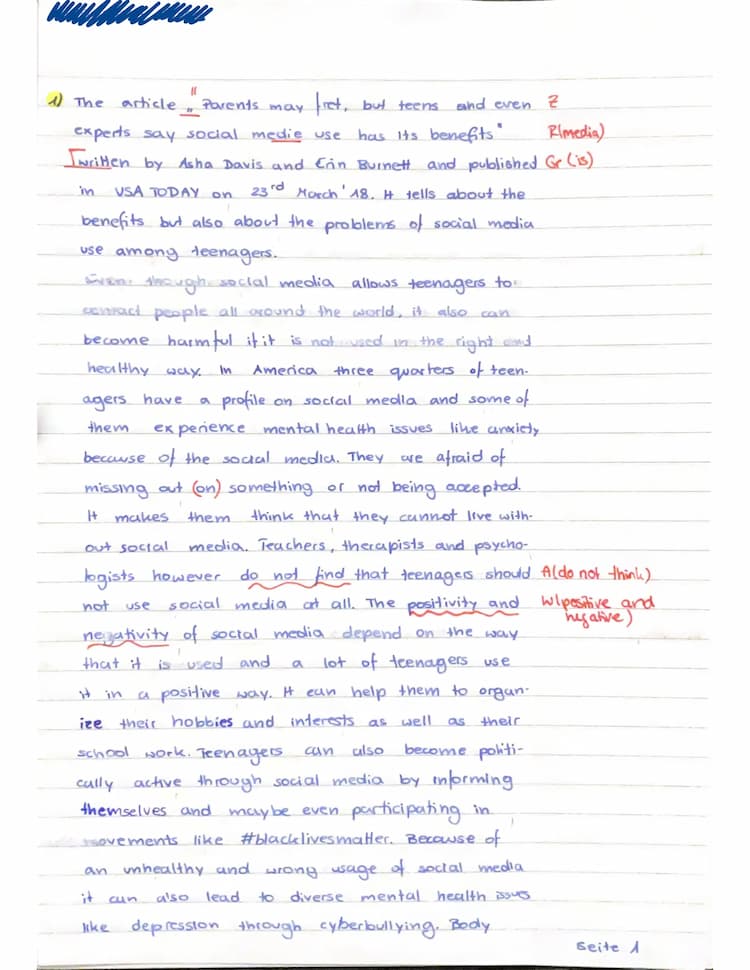 1) The article „Parents may fret, but teens and even Z
experts say social medie use has its benefits" R(media)
written by Asha Davis and Erin Burnett and published Gr(is)
in USA TODAY on 23rd March '18. It tells about the
benefits but also about the problems of social media
use among teenagers.
Even though social media allows teenagers to
contact people all around the world, it also can
become harmful if it is not used in the right and
healthy way. In America three quarters of teen-
agers have a profile on social media and some of
them experience mental health issues like anxiety
because of the social media. They are afraid of
missing out (on) something or not being accepted.
It makes them think that they cannot live with-
out social media. Teachers, therapists and psycho-
logists however do not find that teenagers should A(do not think)
not use social media at all. The positivity and W(positive and
negative)
negativity of social media depend on the way
that it is used and a lot of teenagers use
it in a positive way. It can help them to organ-
ize their hobbies and interests as well as their
school work. Teenagers can also become politi-
cally active through social media by informing
themselves and maybe even participating in
movements like #blacklivesmatter. Because of
an unhealthy and wrong usage of social media
it can also lead to diverse mental health issues
like depression through cyberbullying. Body
Seite 1